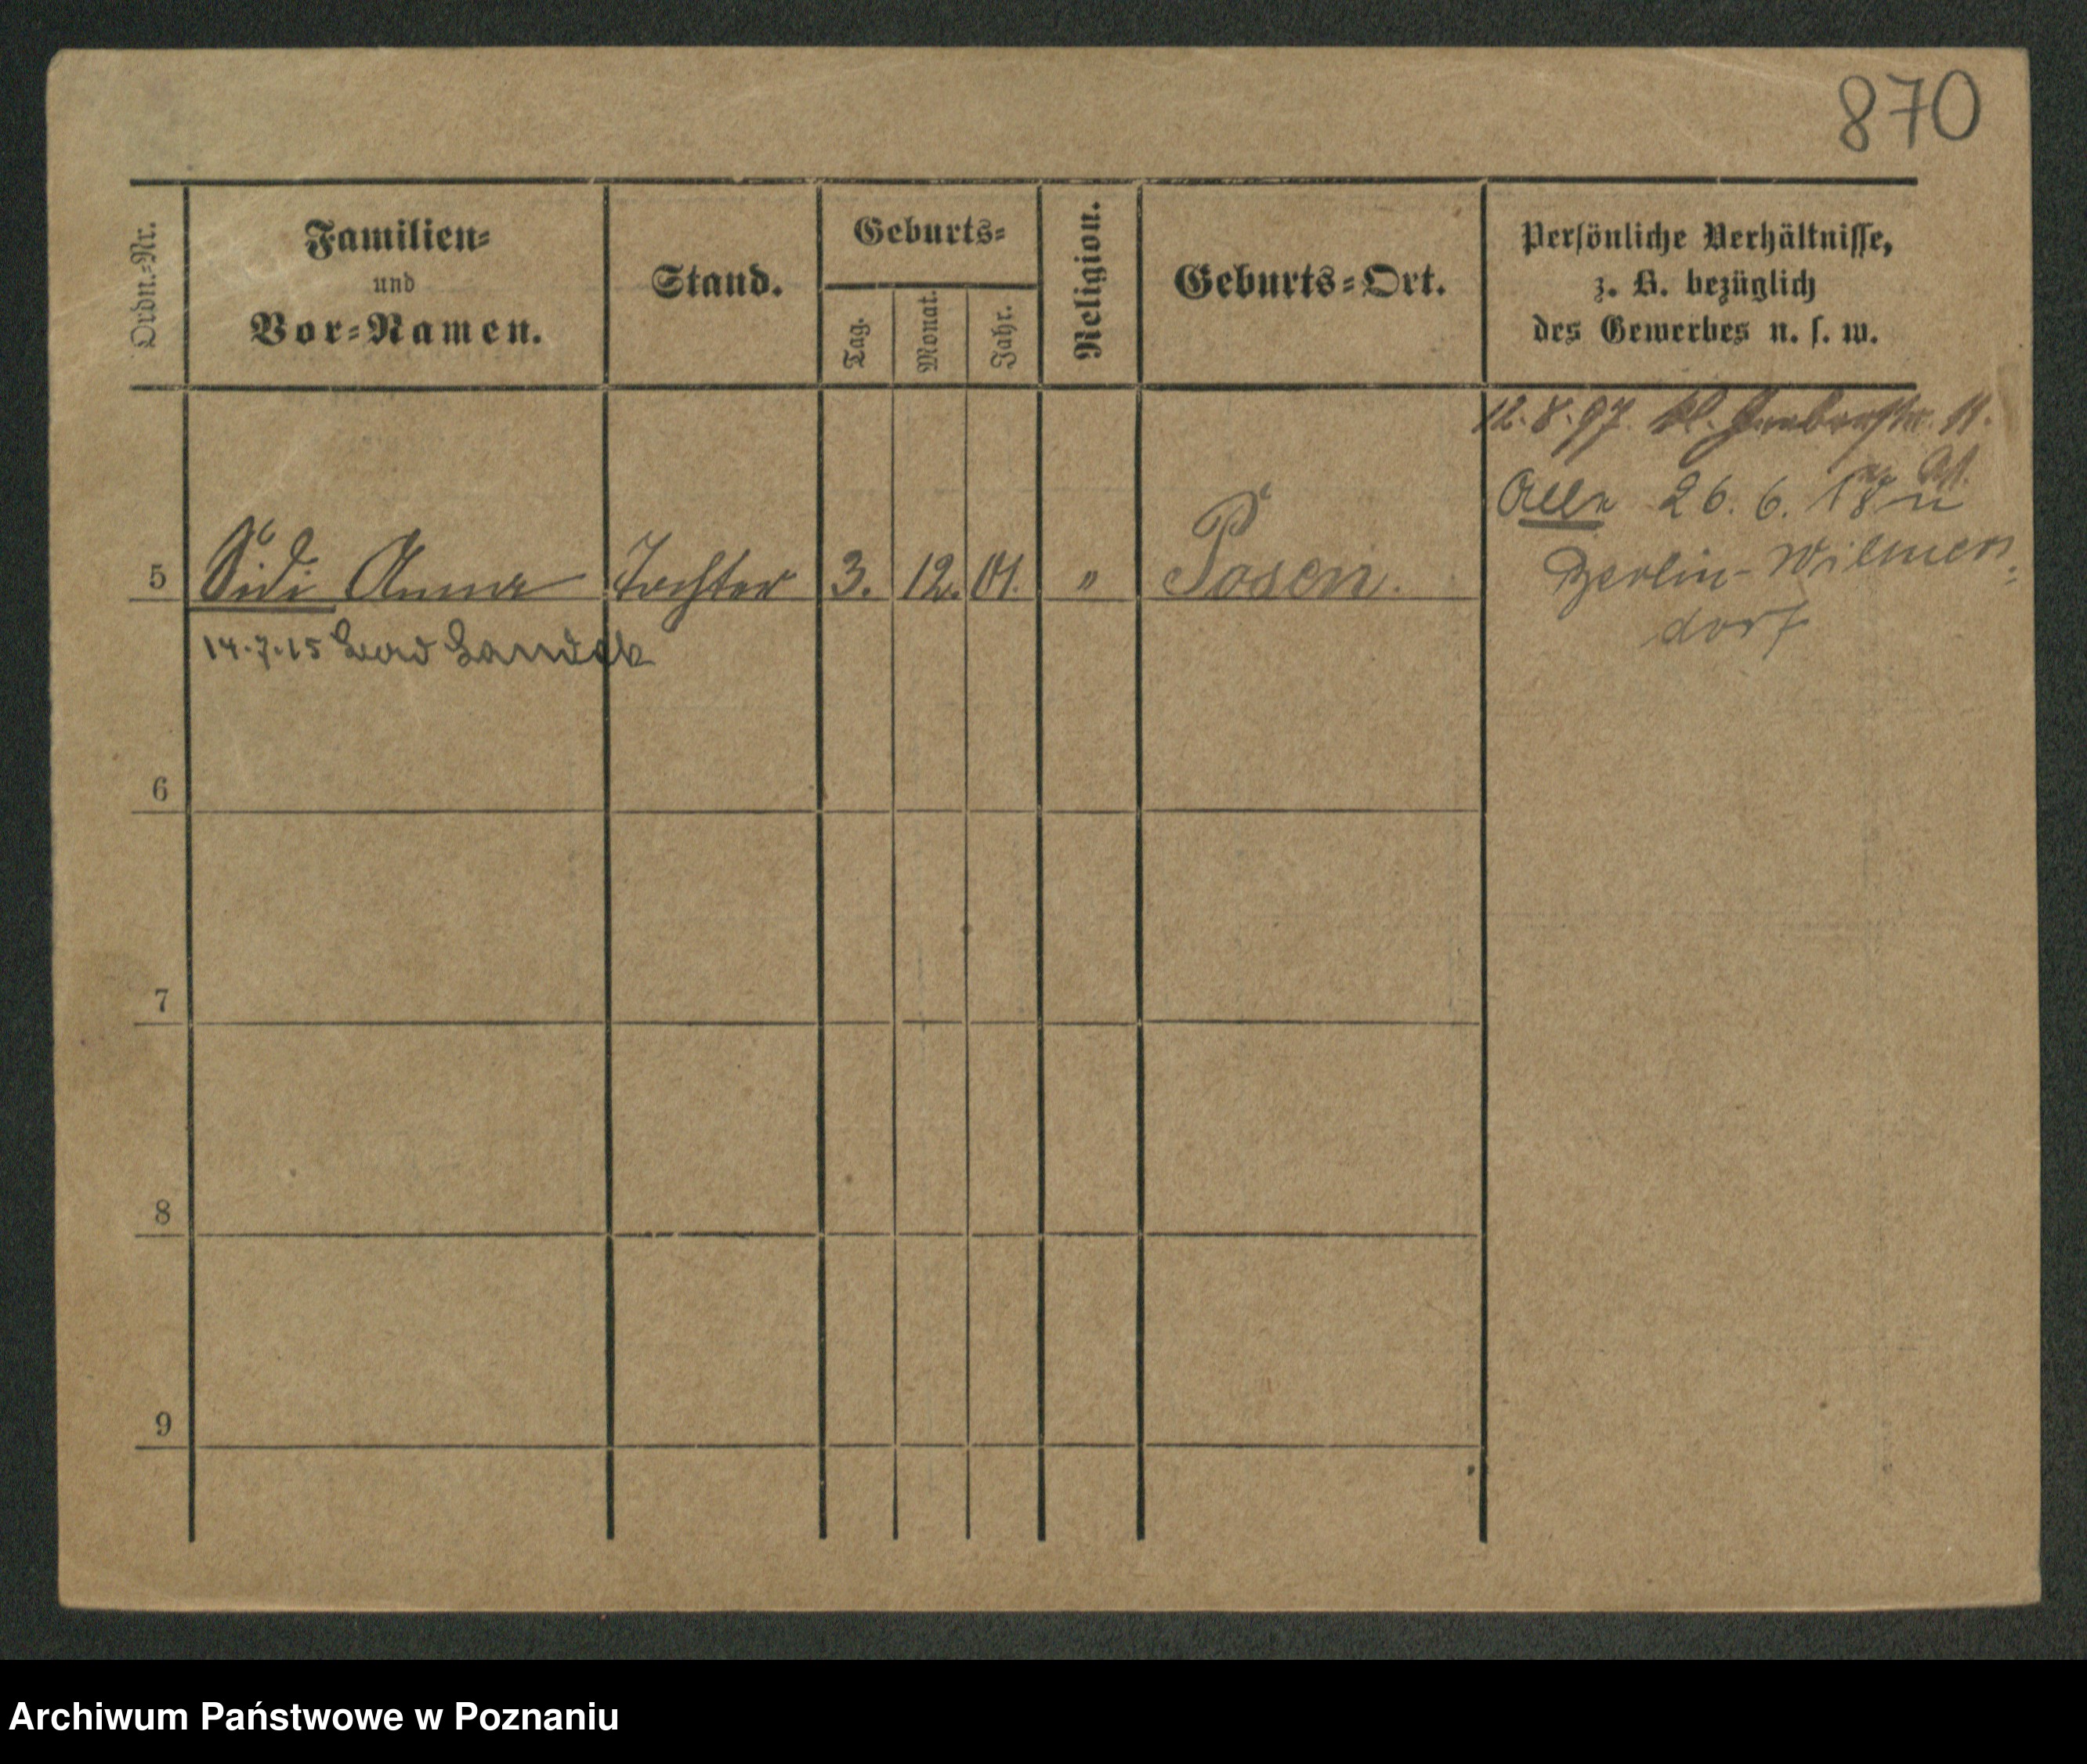 870
Ordn.=Nr.
Familien=
und
Vor=Namen.
Stand.
Geburts=
Tag.
Monat.
Jahr.
Religion.
Geburts=Ort.
Persönliche Verhältnisse,
z. B. bezüglich
des Gewerbes u. s. w.
12.8.97. kl. Gerberstr. 11.
26. 6. 18
Berlin-Wilmers
dorf
5 Sidi Anna Tochter 3. 12. 01. " Posen.
14.7.15 Landek
6
7
8
9
Archiwum Państwowe w Poznaniu